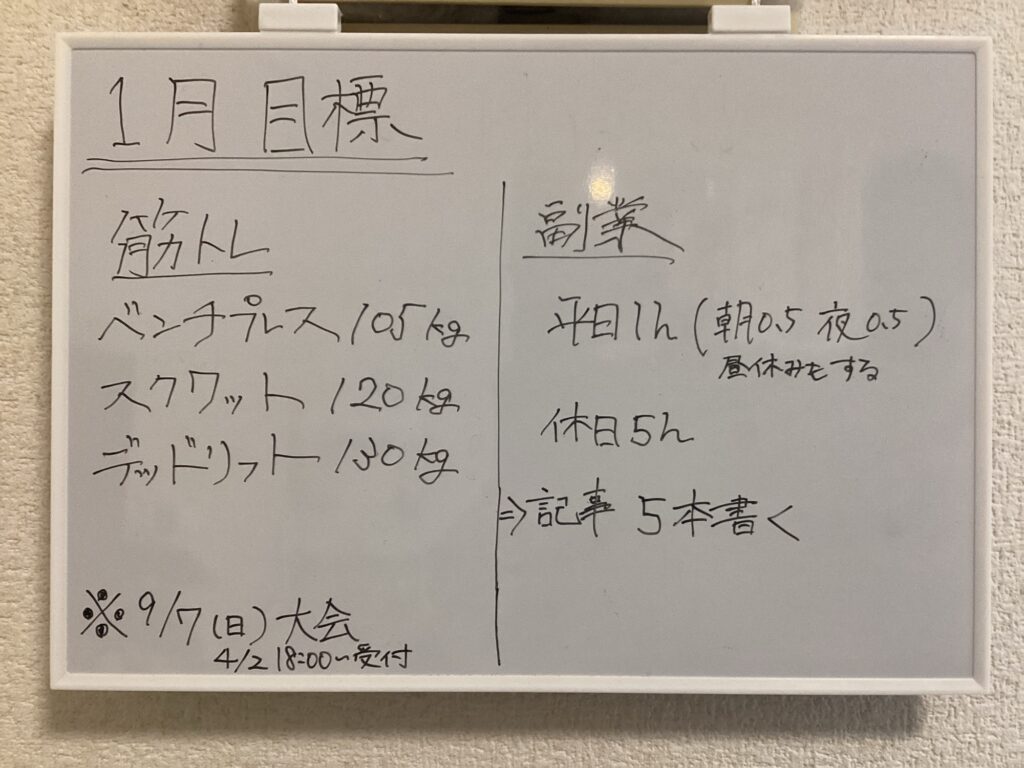 1月 目標
筋トレ
ベンチプレス 105kg
スクワット 120kg
デッドリフト 130kg
※9/7(日)大会
4/2 18:00〜受付
副業
平日1h(朝0.5 夜0.5)
昼休みもする
休日5h
⇒記事 5本書く